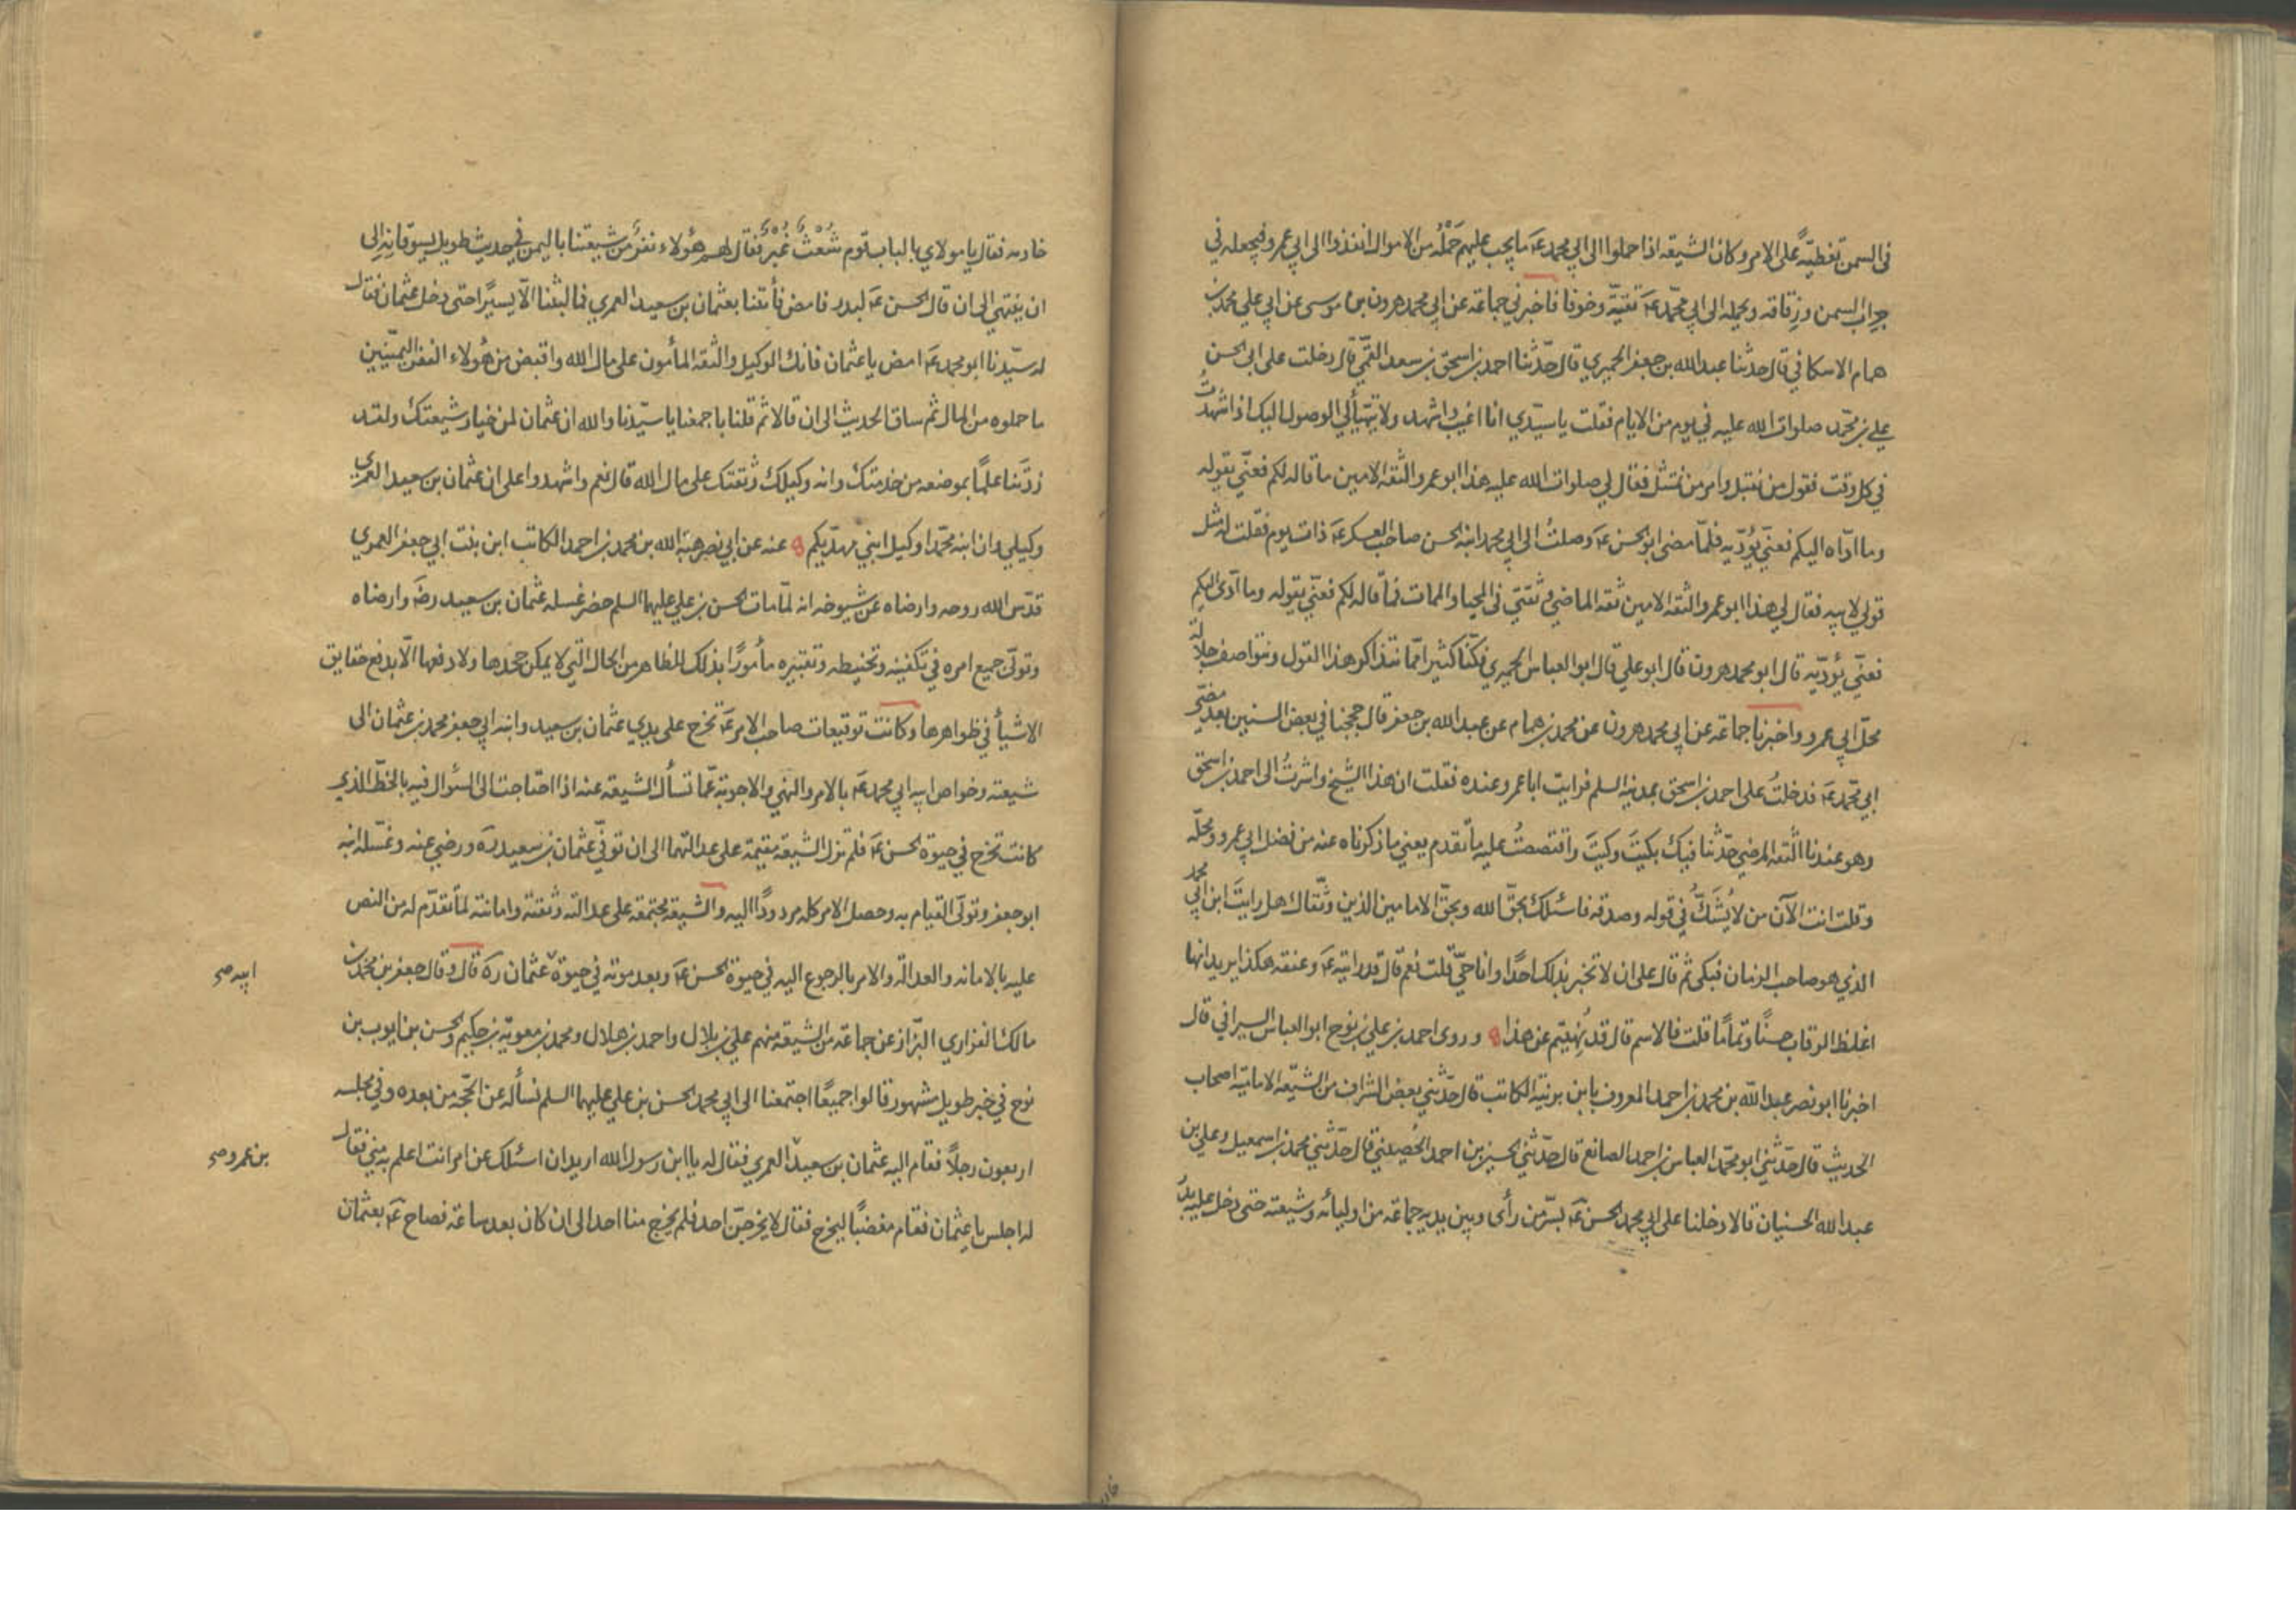 في السمن تغطيةً على الامر وكان الشيعه اذا حملوا الى ابي محمد عۤ ما يجب عليهم حَمْلُه من الاموال انفذوا الى ابي عمرو فيجعله في
جراب السمن وزقاقه ويحمله الى ابي محمّد عۤ تقيّة وخوفا فاخبرني جماعة عن ابي محمد هرون بن موسى عن ابي علي محمد بن
همام الاسكافي قال حدثنا عبد الله بن جعفر الحميري قال حدّثنا احمد بن اسحق بن سعد القمّي قال دخلت على ابى الحسن
علي بن محمّد صلوات الله عليه في يوم من الايام فقلت يا سيّدي انا اغيب واشهد ولا يتهيأ لي الوصول اليك اذا شهدتُ
في كل وقت فقول من نقبل وامر من نمتثل فقال لي صلوات الله عليه هذا ابو عمرو الثقه الامين ما قاله لكم فعنّي يقوله
وما ادّاه اليكم فعنّي يُؤدّيه فلمّا مضى ابو الحسن عۤ وصلتُ الى ابي محمد ابنه الحسن صاحب العسكر عۤ ذات يوم فقلت له مثل
قولي لابيه فقال لي هذا ابو عمرو الثقه الامين ثقه الماضي وثقتي في المحيا والممات فمّا قاله لكم فعنّي يقوله وما ادّى اليكم
فعنّي يؤدّيه قال ابو محمد هرون قال ابو علي قال ابو العباس الحميري فكنّا كثيرا مّا نتذاكر هذا القول ونتواصف جلالة
محلّ ابي عمرو واخبرنا جماعة عن ابي محمد هرون عن محمد بن همام عن عبد الله بن جعفر قال حججنا في بعض السنين بعد مضيّ
ابي محمّد عۤ فدخلتُ على احمد بن اسحق بمدينة السلم فرايت ابا عمرو عنده فقلت ان هذا الشيخ واشرتُ الى احمد بن اسحق
وهو عندنا الثقه المرضي حدّثنا فيك بكيتَ وكيتَ واقتصصتُ عليه ما تقدم يعني ما ذكرناه عنه من فضل ابي عمرو ومحلّه
وقلت انت الآن من لا يُشَكُّ في قوله وصدقه فاسئلك بحقّ الله وبحقّ الامامين الذين وثّقاك هل رايتَ ابن ابي محمد
الذي هو صاحب الزمان فبكى ثم قال على ان لا تخبر بذلك احدًا وانا حيّ قلت نعم قال قد رايته عۤ وعنقه هكذا يريد انها
اغلظ الرقاب حسنًا وتمامًا قلت فالاسم قال قد نُهيتم عن هذا وروى احمد بن علي بن نوح ابو العباس السيرافي قال
اخبرنا ابو نصر عبد الله بن محمد بن احمد المعروف بابن برنية الكاتب قال حدّثني بعض الشراف من الشيعه الاماميّه اصحاب
الحديث قال حدّثني ابو محمّد العباس بن احمد الصائغ قال حدّثني الحسين بن احمد الخُصيبي قال حدّثني محمد بن اسمعيل وعلي بن
عبد الله الحسنيان قالا دخلنا على ابي محمد الحسن عۤ بسرّ من رأى وبين يديه جماعة من اوليائه وشيعته حتى دخل عليه بدرٌ
خادمه فقال يا مولاي بالباب قوم شُعْثٌ غُبْرٌ فقال لهم هؤلاء نفرٌ من شيعتنا باليمن في حديث طويل يسوقانه الى
ان ينتهي الى ان قال الحسن عۤ لبدر فامض فأتنا بعثمان بن سعيد العمري فما لبثنا الّا يسيرًا حتى دخل عثمان فقال
له سيّدنا ابو محمد عۤ امض يا عثمان فانك الوكيل والثقه المأمون على مال الله واقبض من هؤلاء النفر اليمنيّين
ما حملوه من المال ثم ساق الحديث الى ان قالا ثم قلنا باجمعنا يا سيّدنا والله ان عثمان لمن خيار شيعتك ولقد
زدتَنا علمًا بموضعه من خدمتك وانه وكيلك وثقتك على مال الله قال نعم واشهدوا على ان عثمان بن سعيد العمري
وكيلي وان ابنه محمّدا وكيل ابني مهديّكم عنه عن ابي نصر هبة الله بن محمد بن احمد الكاتب ابن بنت ابي جعفر العمري
قدّس الله روحه وارضاه عن شيوخه انه لمّا مات الحسن بن علي عليهما السلم حضر غسله عثمان بن سعيد رضۤ وارضاه
وتولّى جميع امره في تكفينه وتحنيطه وتقبيره مأمورًا بذلك للظاهر من الحال الّتي لا يمكن جحدها ولا دفعها الّا بدفع حقايق
الاشيأ في ظواهرها وكانت توقيعات صاحب الامر عۤ تخرج على يدي عثمان بن سعيد وابنه ابي جعفر محمد بن عثمان الى
شيعته وخواص ابيه ابي محمد عۤ بالامر والنهي والاجوبة عمّا تسأل الشيعه عنه اذا احتاجت الى السُؤال فيه بالخطّ الذي
كانت تخرج في حيوة الحسن عۤ فلم تزل الشيعه مقيمة على عدالتهما الى ان توفّي عثمان بن سعيد رۤه ورضي عنه وغسّله ابنه
ابو جعفر وتولّى القيام به وحصل الامر كله مردودًا اليه والشيعه مجتمعة على عدالته وثقته وامانته لما تقدّم له من النص
عليه بالامانه والعدالة والامر بالرجوع اليه في حيوة الحسن عۤ وبعد موته في حيوة عثمان رۤه قال وقال جعفر بن محمد بن
ابيه صح
مالك الفزاري البزّاز عن جماعة من الشيعه منهم علي بن بلال واحمد بن هلال ومحمد بن معوية بن حكيم والحسن بن ايوب بن
نوح في خبر طويل مشهور قالوا جميعًا اجتمعنا الى ابي محمد الحسن بن علي عليهما السلم نسأله عن الحجّة من بعده وفي مجلسه
اربعون رجلاً فقام اليه عثمان بن سعيد العمري فقال له يا ابن رسول الله اريد ان اسئلك عن امر انت اعلم به مني فقال
بن عمرو صح
له اجلس يا عثمان فقام مغضبًا ليخرج فقال لا يخرجنّ احد فلم يخرج منا احد الى ان كان بعد ساعة فصاح عۤ بعثمان